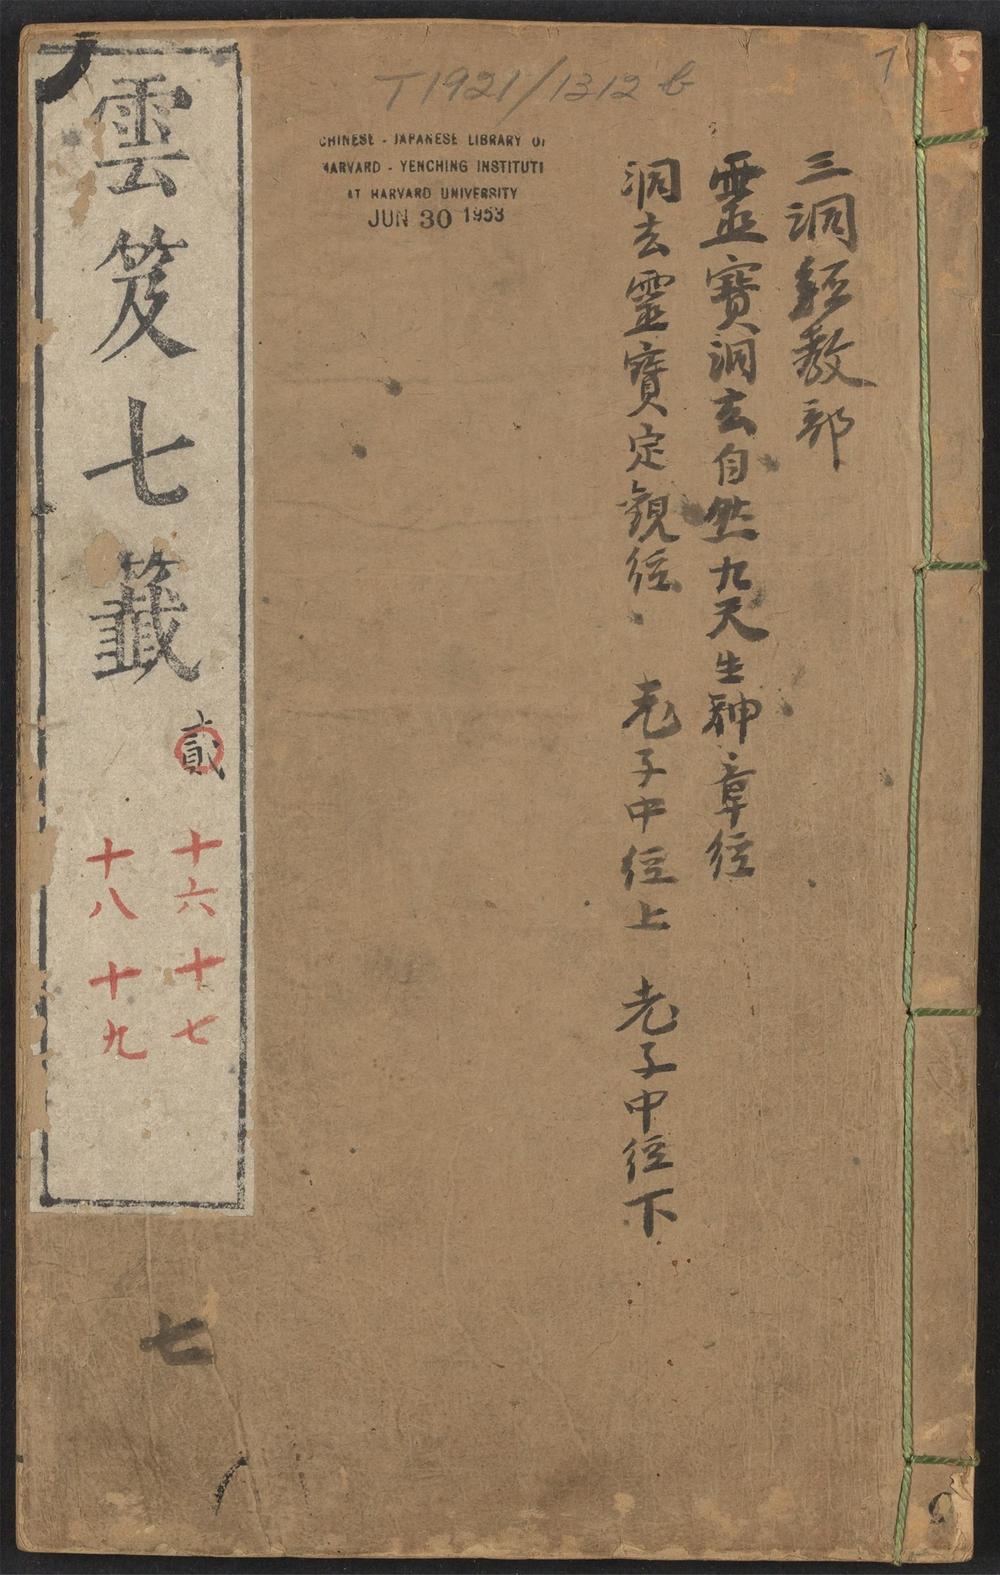 T1921/1312 b
7
CHINESE - JAPANESE LIBRARY OF
HARVARD - YENCHING INSTITUTE
AT HARVARD UNIVERSITY
JUN 30 1953
三洞經敎部
靈寶洞玄自然九天生神章経
洞玄靈寶定觀経 老子中経上 老子中経下
雲笈七籤
貳
十六 十七
十八 十九
七